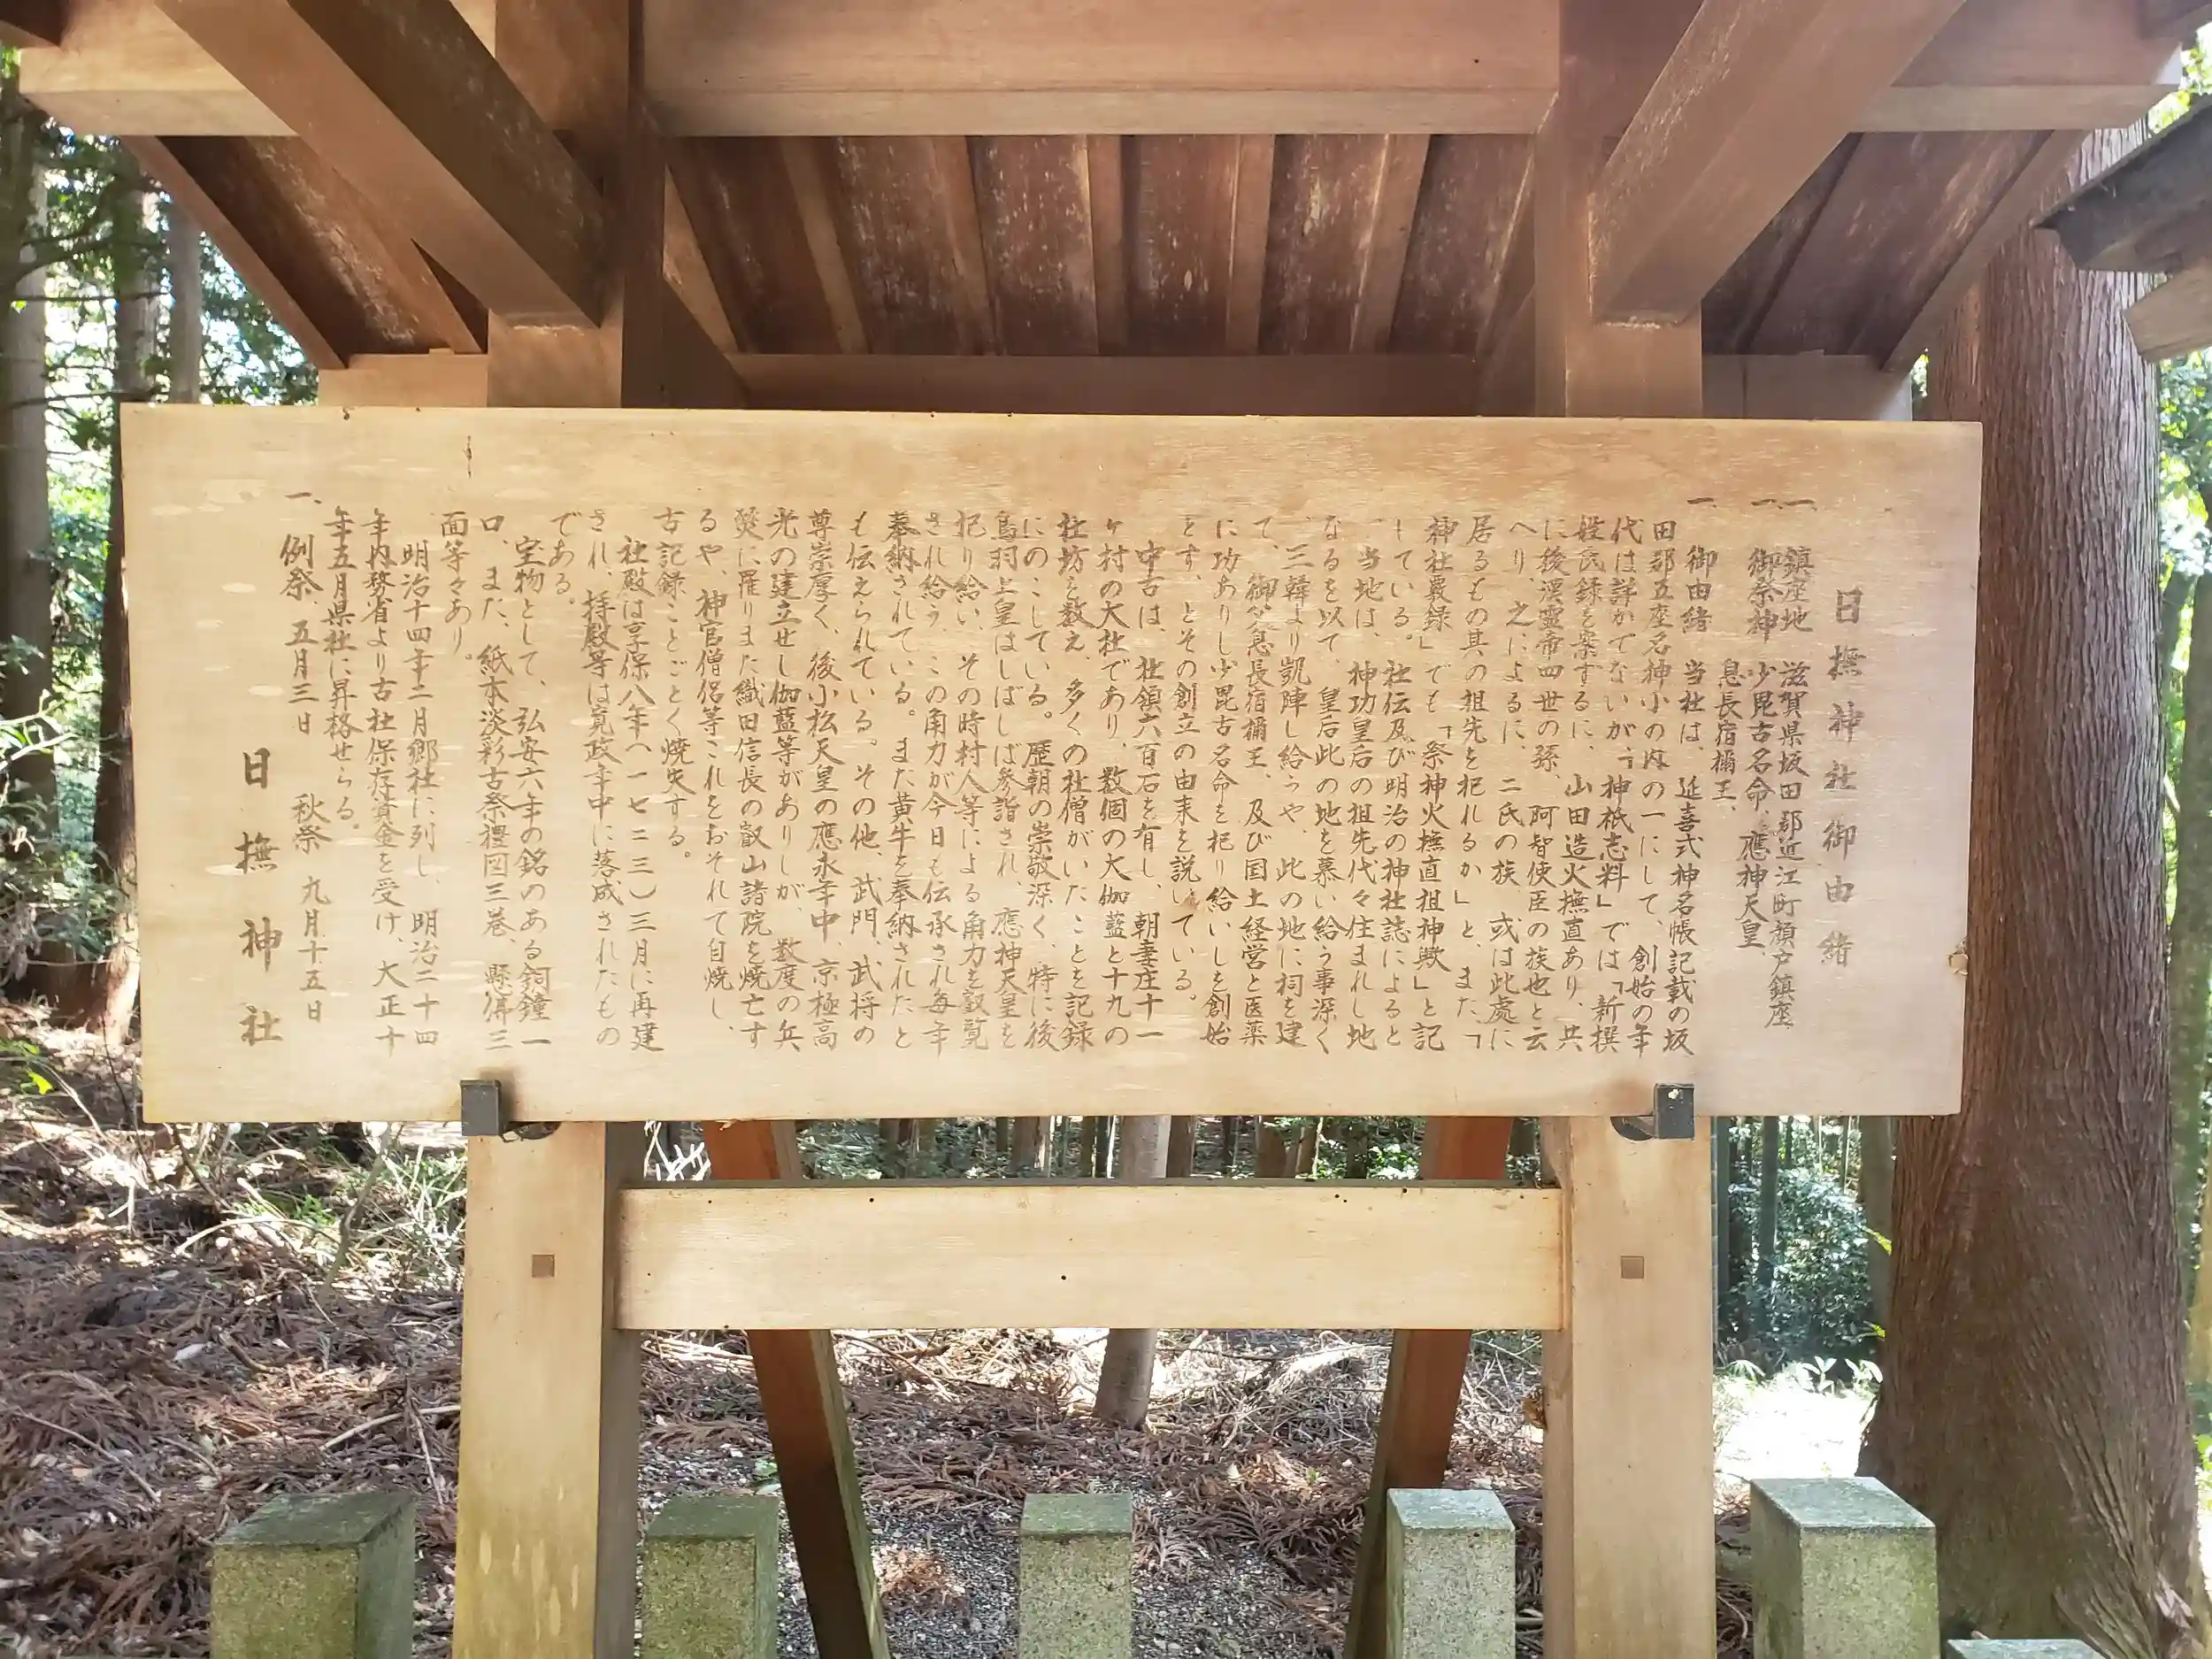 日撫神社御由緒
一、鎮座地 滋賀県坂田郡近江町顔戸鎮座
一、御祭神 少毘古名命、應神天皇、
息長宿禰王、
一、御由緒 当社は、延喜式神名帳記載の坂
田郡五座名神小の内の一にして、創始の年
代は詳かでないが、「神祇志料」では「新撰
姓氏録を案するに、山田造火撫直あり、共
に後漢霊帝四世の孫、阿智使臣の族也と云
へり、之によるに、二氏の族、或は此處に
居るもの其の祖先を祀れるか」と、また「
神社覈録」でも「祭神火撫直祖神歟」と記
している。社伝及び明治の神社誌によると
、当地は、神功皇后の祖先代々住まれし地
なるを以て、皇后此の地を慕い給う事深く
、三韓より凱陣し給うや、此の地に祠を建
て、御父息長宿禰王、及び国土経営と医薬
に功ありし少毘古名命を祀り給いしを創始
とす、とその創立の由来を説いている。
中古は、社領六百石を有し、朝妻庄十一
ヶ村の大社であり、数個の大伽藍と十九の
社坊を数え、多くの社僧がいたことを記録
にのこしている。歴朝の崇敬深く、特に後
鳥羽上皇はしばしば参詣され、應神天皇を
祀り給い、その時村人等による角力を叡覧
され給う、この角力が今日も伝承され毎年
奉納されている。また黄牛を奉納されたと
も伝えられている。その他、武門、武将の
尊崇厚く、後小松天皇の應永年中、京極高
光の建立せし伽藍等がありしが、数度の兵
燹に罹りまた織田信長の叡山諸院を焼亡す
るや、神官僧侶等これをおそれて自焼し、
古記録ことごとく焼失する。
社殿は享保八年（一七二三）三月に再建
され、拝殿等は寛政年中に落成されたもの
である。
宝物として、弘安六年の銘のある銅鐘一
口、また、紙本淡彩古祭禮図三巻、懸佛三
面等々あり。
明治十四年二月郷社に列し、明治二十四
年内務省より古社保存資金を受け、大正十
年五月県社に昇格せらる。
一、例祭、五月三日 秋祭 九月十五日
日撫神社